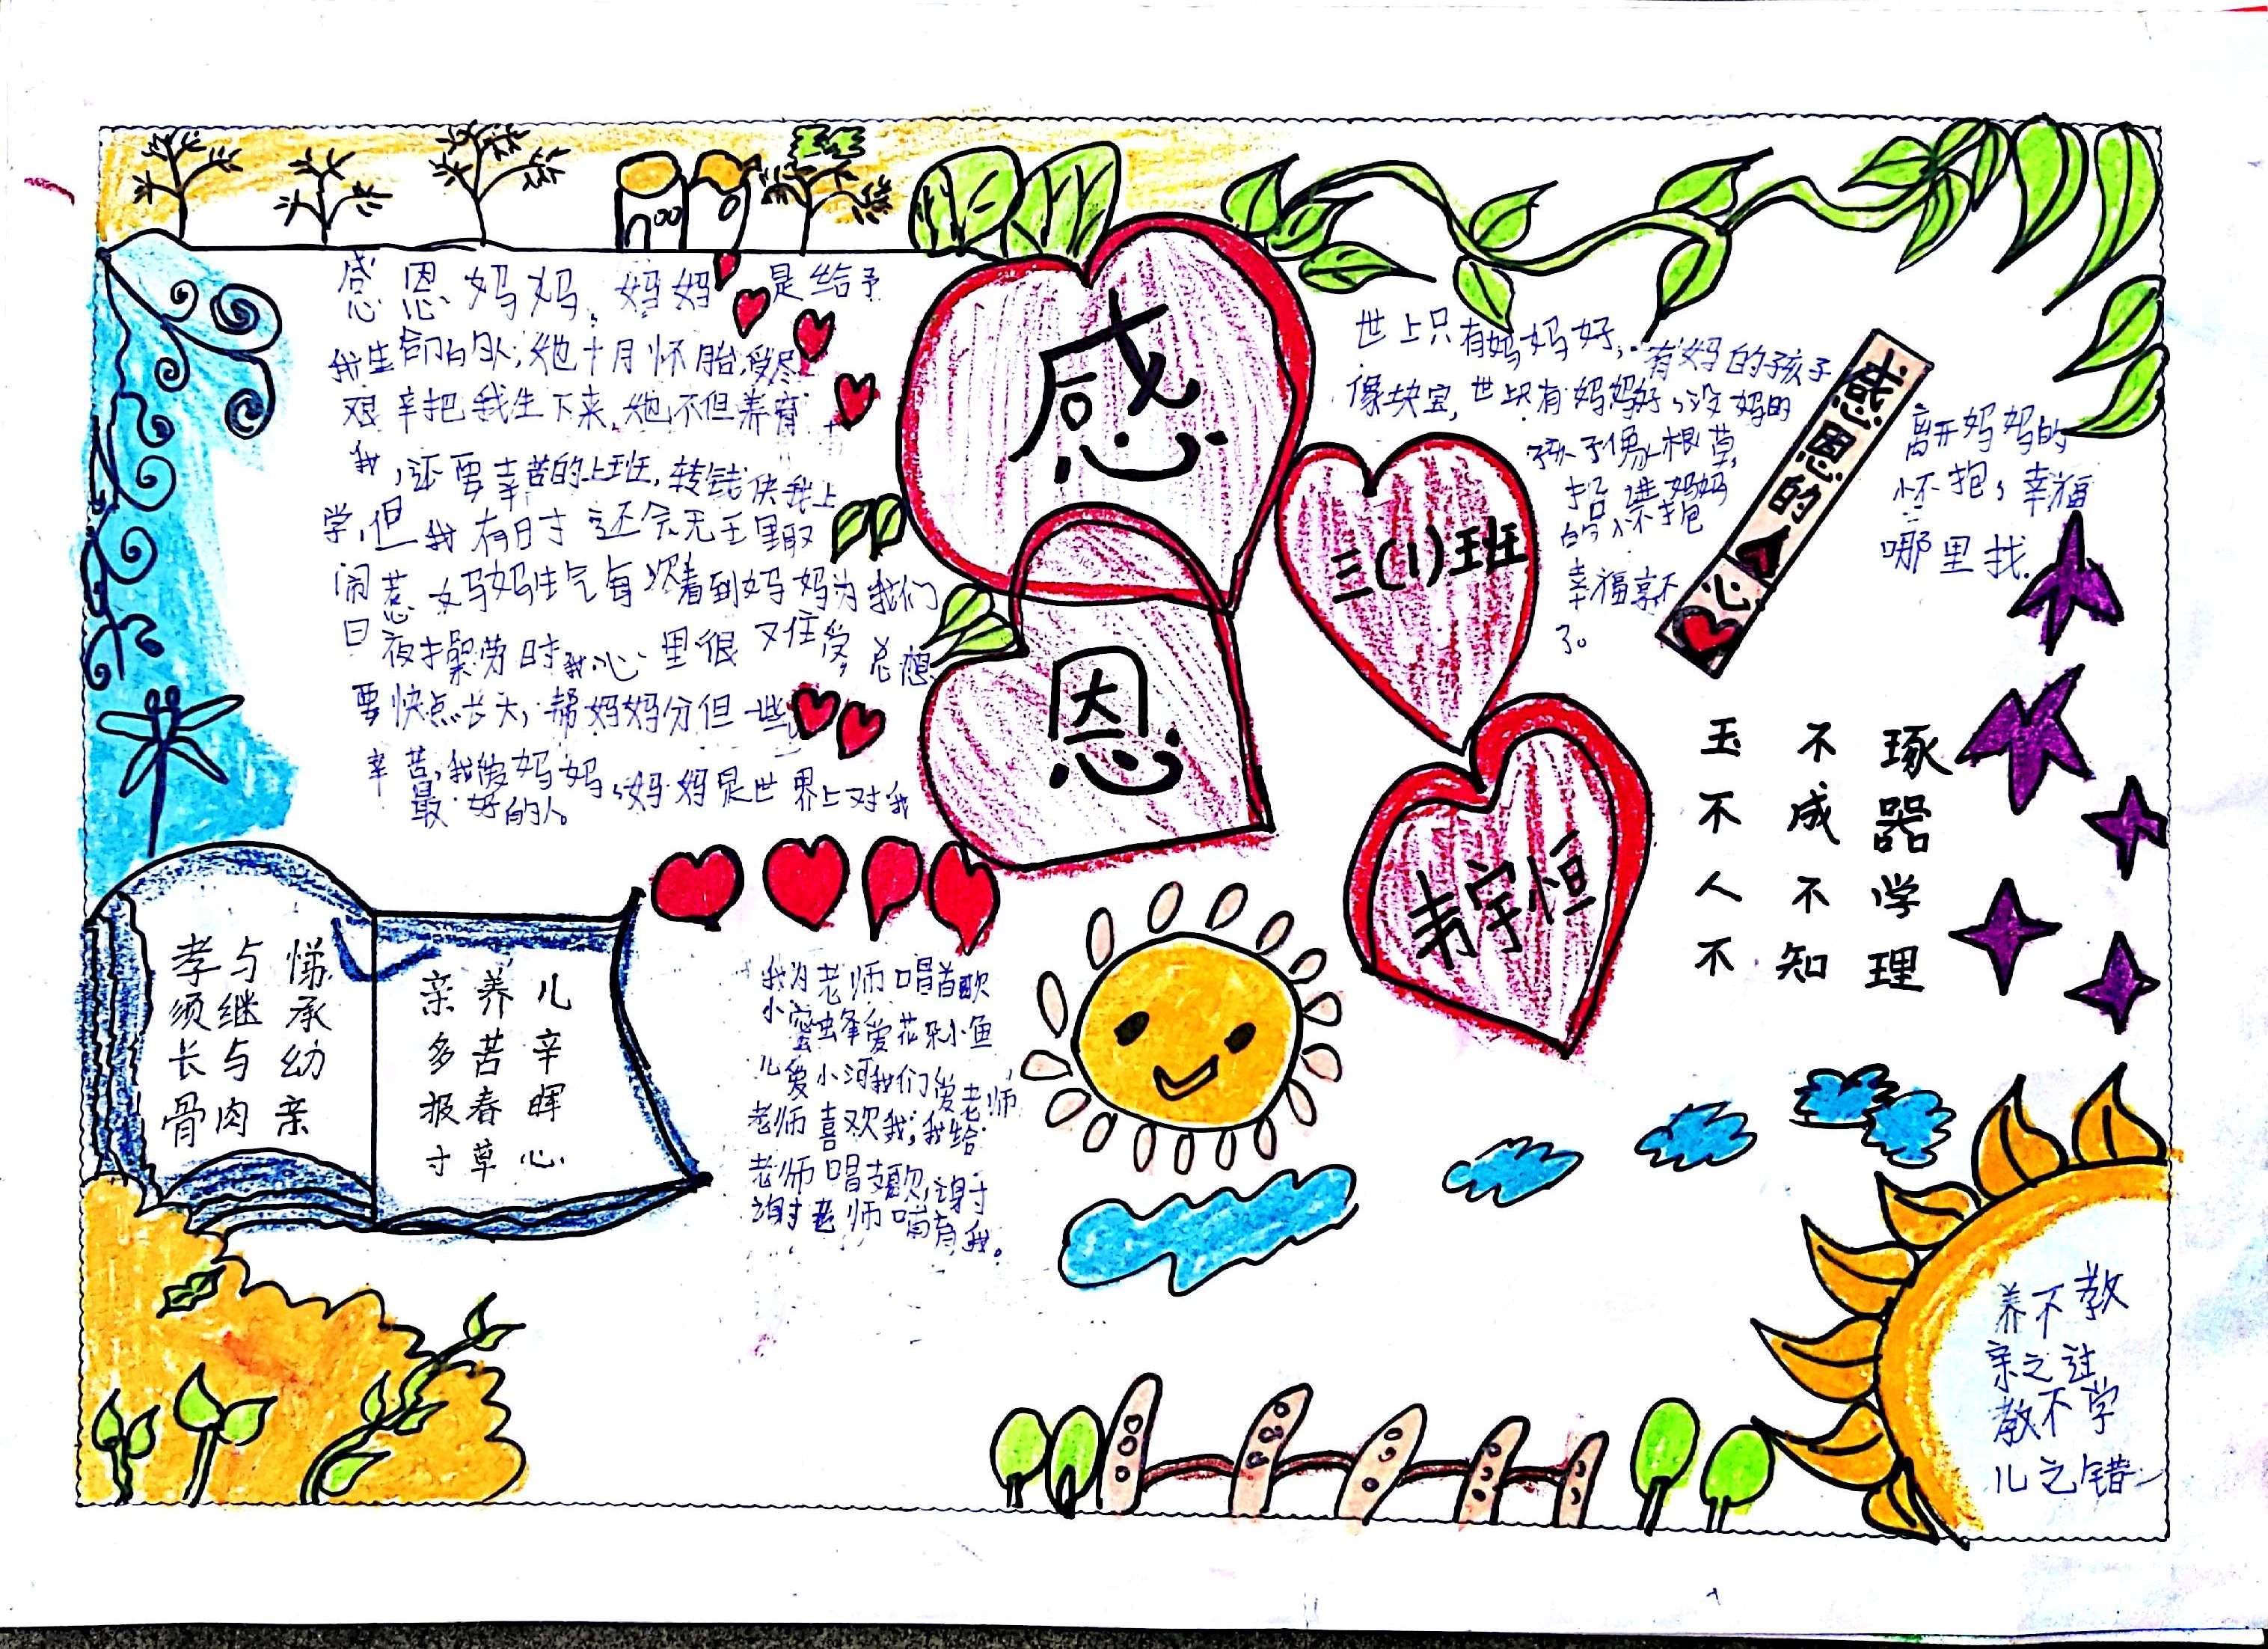 感恩妈妈。妈妈是给予
我生命的人,她十月怀胎,受尽
艰辛把我生下来,她不但养育
我,还要幸苦的上班,转钱供我上
学,但我有时还会无
闹惹妈妈生气每次看到妈妈为我们
日夜操劳时我心里很又住受,总想
要快点长大,帮妈妈分但一些
幸苦,我爱妈妈,妈妈是世界上对我
最好的人。
感
恩
三(1)班
宇恒
世上只有妈妈好,有妈的孩子
像块宝,世上只有妈妈好,没妈的
孩子像根草,
妈妈
的怀抱
幸福享不
了。
感恩的心
离开妈妈的
怀抱,幸福
哪里找.
玉不琢
不成器
人不学
不知理
孝与悌
须继承
长与幼
骨肉亲
亲养儿
多苦辛
报春晖
寸草心
我为老师唱首歌
小蜜蜂爱花朵小鱼
儿爱小河我们爱老师
老师喜欢我,我给
老师唱支歌,谢
谢老师哺育我。
养不教
亲之过
教不学
儿之错